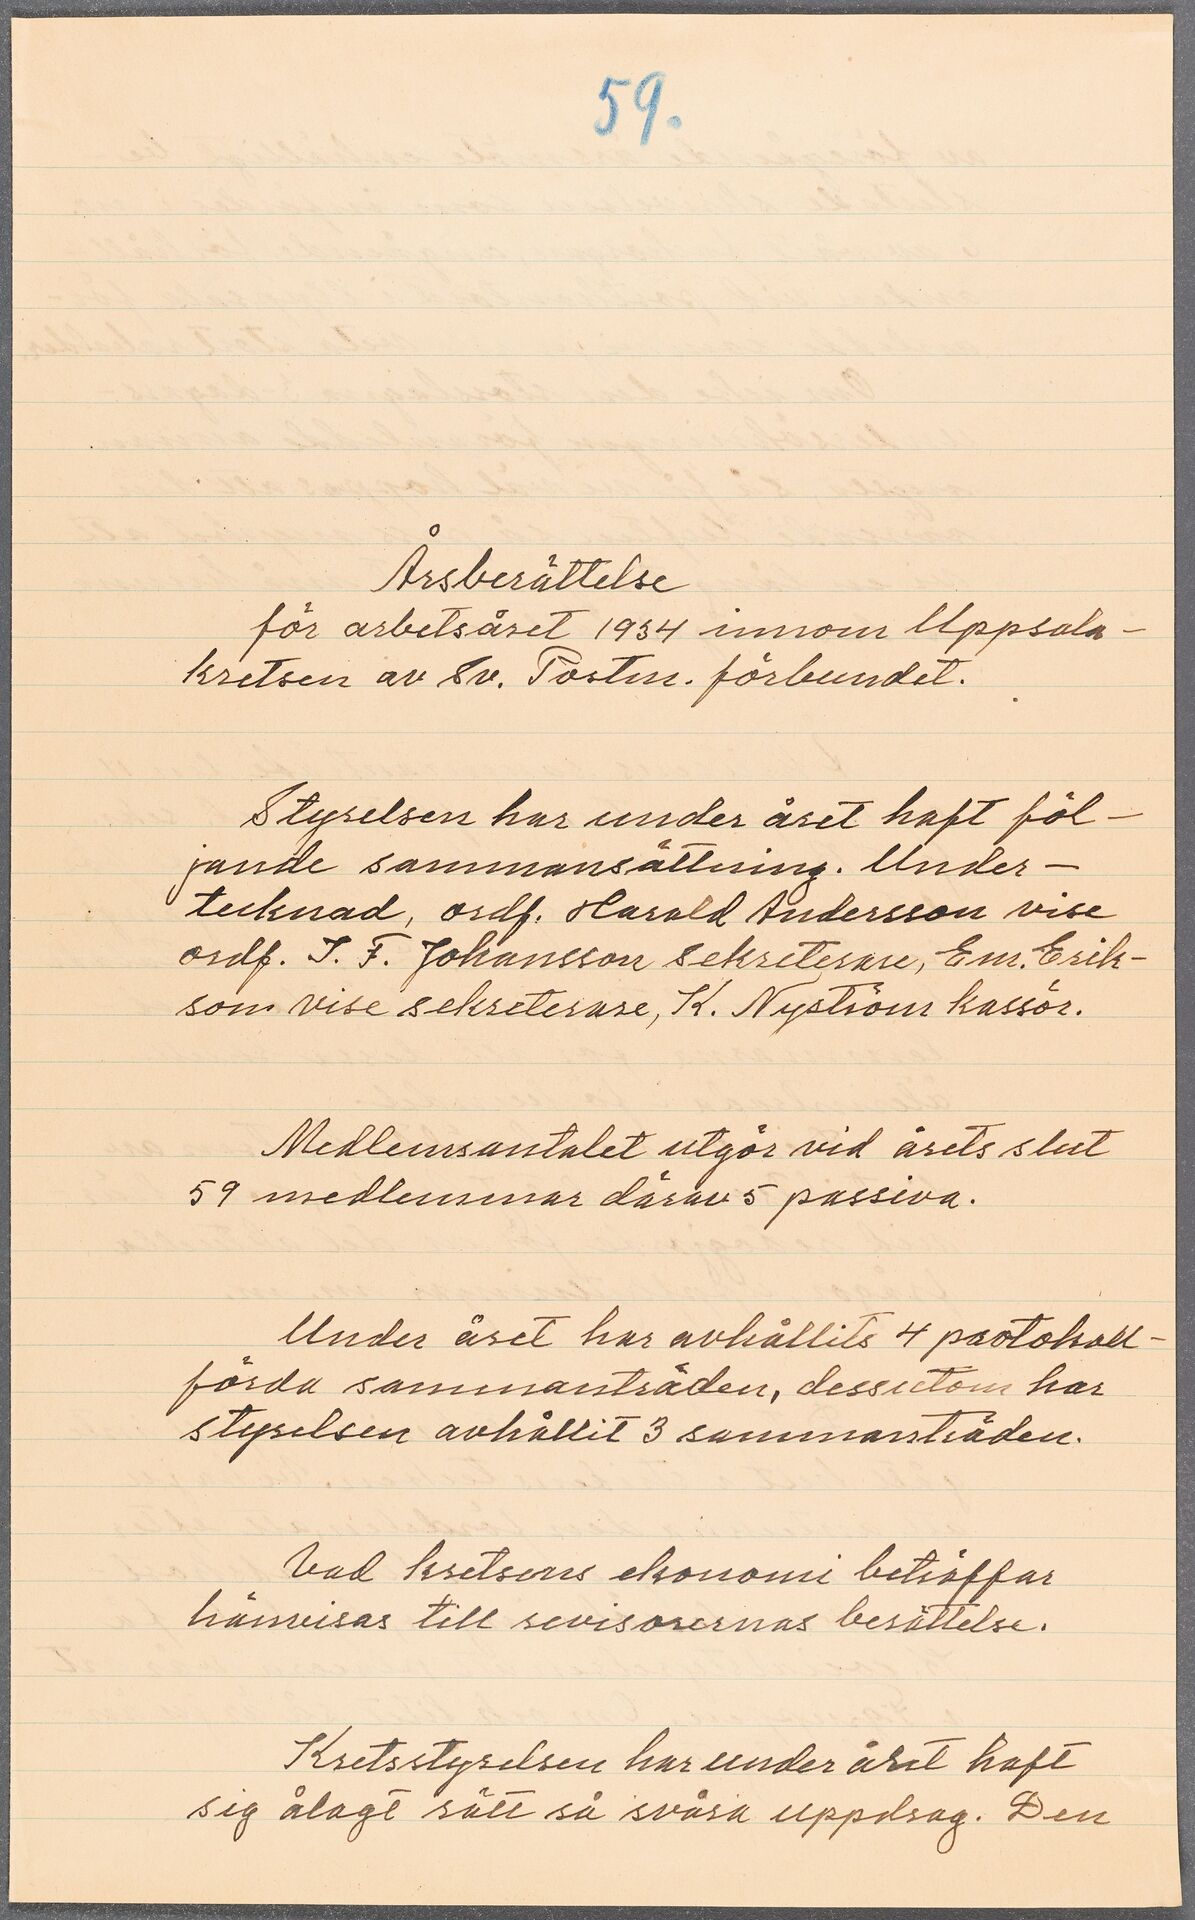 59.
Årsberättelse
för arbetsåret 1934 innom Uppsala-
kretsen av Sv. Postm. förbundet.
Styrelsen har under året haft föl-
jande sammansättning. Under-
tecknad, ordf. Harald Andersson vise
ordf. J. F. Johansson Sekreterare, Em. Erik-
son vise sekreterare, K. Nyström kassör.
Medlemsantalet utgör vid årets slut
59 medlemmar därav 5 passiva.
Under året har avhållits 4 protokoll-
förda sammanträden, dessutom har
styrelsen avhållit 3 sammanträden.
Vad kretsens ekonomi beträffar
hänvisas till revisorernas berättelse.
Kretsstyrelsen har under året haft
sig ålagt rätt så svåra uppdrag. Den